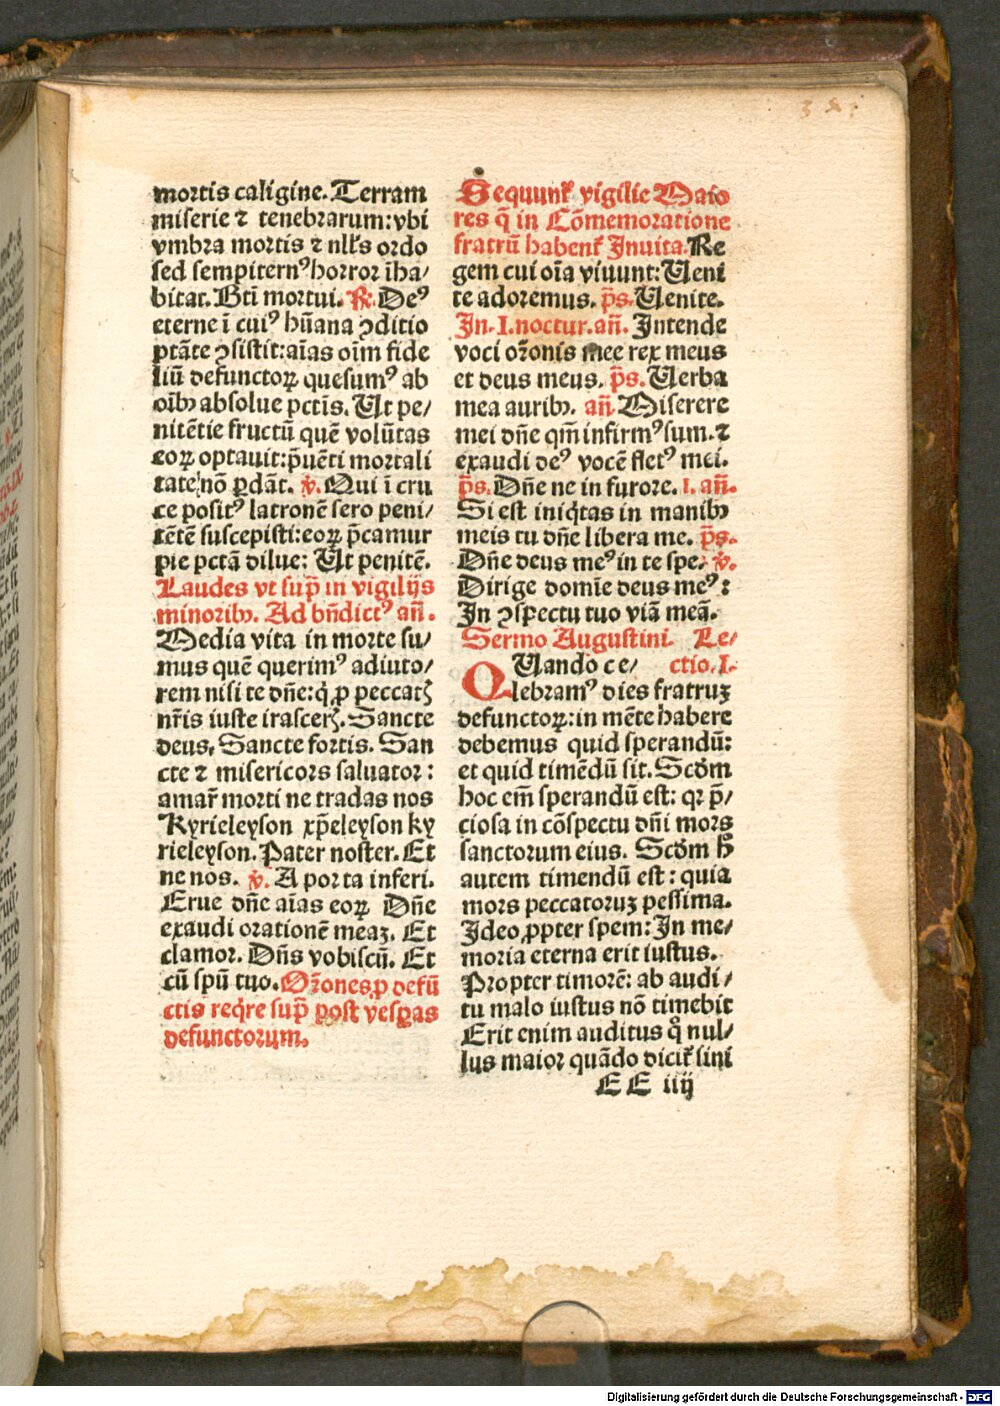 mortis caligine. Terram
miserie ⁊ tenebrarum: vbi
vmbra mortis ⁊ nll's ordo
sed sempitern⁹ horror īha/
bitat. Btī mortui. ℟. De⁹
eterne ī cui⁹ hūana ꝯditio
ptāte ꝯsistit: aīas oīm fide
liū defunctoꝝ quesum⁹ ab
oībꝫ absolue pctīs. Ut pe/
nitētie fructū quē volūtas
eoꝝ optauit: p̄uēti mortali
tate nō ꝑdāt. ℣. Qui ī cru
ce posit⁹ latronē sero peni/
tētē suscepisti: eoꝝ p̄camur
pie pctā dilue: Ut penitē.
Laudes vt sup̄ in vigilijs
minoribꝫ. Ad bn̄dict⁹ an̄.
Media vita in morte su/
mus quē querim⁹ adiuto/
rem nisi te dn̄e: q̇ ꝓ peccatꝭ
nr̄is iuste irascerꝭ. Sancte
deus, Sancte fortis. San
cte ⁊ misericors saluator:
amar̄ morti ne tradas nos
Kyrieleyson xp̄eleyson ky
rieleyson. Pater noster. Et
ne nos. ℣. A porta inferi.
Erue dn̄e aīas eoꝝ Dn̄e
exaudi orationē meaꝫ. Et
clamor. Dn̄s vobiscū. Et
cū spū tuo. Or̄ones ꝓ defū
ctis req̇re sup̄ post vesꝑas
defunctorum.
Sequunt᷑ vigilie Maio
res q̄ in Cōmemoratione
fratrū habent᷑ Inuita. Re
gem cui oīa viuunt: Ueni
te adoremus. p̄s. Uenite.
In. I. noctur. an̄. Intende
voci or̄onis mee rex meus
et deus meus. p̄s. Uerba
mea auribꝫ. an̄. Miserere
mei dn̄e qm̄ infirm⁹ sum. ⁊
exaudi de⁹ vocē flet⁹ mei.
p̄s. Dn̄e ne in furore. I. an̄.
Si est iniq̇tas in manibꝫ
meis tu dn̄e libera me. p̄s.
Dn̄e deus me⁹ in te spe. ℣.
Dirige domīe deus me⁹:
In ꝯspectu tuo viā meā.
Sermo Augustini. Le/
Quando ce/ ctio. I.
lebram⁹ dies fratruꝫ
defunctoꝝ: in mēte habere
debemus quid sperandū:
et quid timēdū sit. Scd̄m
hoc em̄ sperandū est: qꝛ p̄/
ciosa in cōspectu dn̄i mors
sanctorum eius. Scd̄m h̄
autem timendū est: quia
mors peccatoruꝫ pessima.
Ideo ꝓpter spem: In me/
moria eterna erit iustus.
Propter timorē: ab audi/
tu malo iustus nō timebit
Erit enim auditus q̄ nul/
lus maior quādo dicit᷑ sini
EE iiij
Digitalisierung gefördert durch die Deutsche Forschungsgemeinschaft - DFG